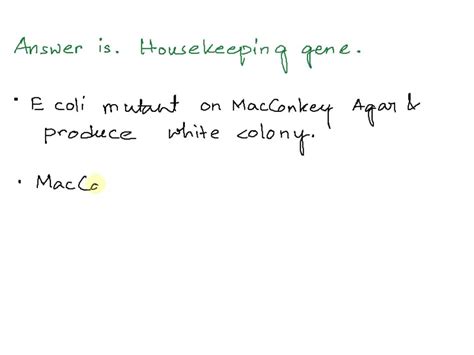 Answer is. Housekeeping gene.
• E coli mutant on MacConkey Agar &
produce white colony.
• MacCo